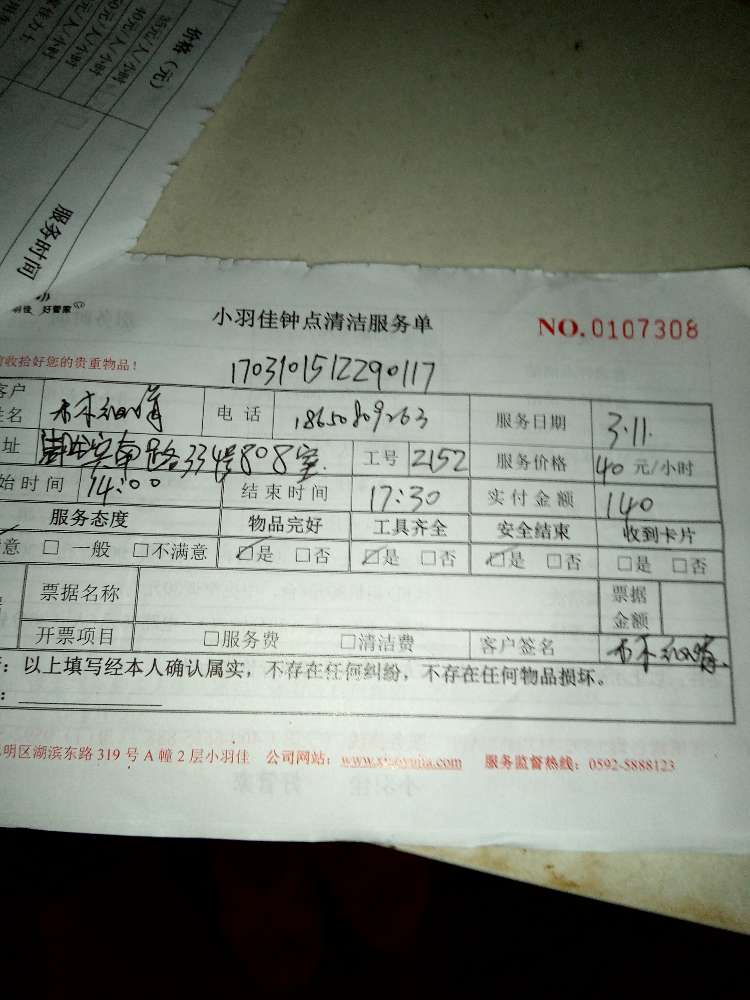 价格（元）
35元/人/小时
40元/人/小时
0元/人/小时
服务时间
好管家
小羽佳钟点清洁服务单
NO.0107308
收拾好您的贵重物品！
1703101512290117
客户
姓名
电话
18650809263
服务日期
3.11.
址
路334号808室.
工号
2152
服务价格
40 元/小时
始时间
14:00
结束时间
17:30
实付金额
140
服务态度
物品完好
工具齐全
安全结束
收到卡片
意 □ 一般 □不满意
☑是 □否
☑是 □否
☑是 □否
□是 □否
票据名称
票据
金额
开票项目
□服务费 □清洁费
客户签名
：以上填写经本人确认属实，不存在任何纠纷，不存在任何物品损坏。
明区湖滨东路 319 号 A 幢 2 层小羽佳 公司网站：www.xiaoyujia.com 服务监督热线：0592-5888123